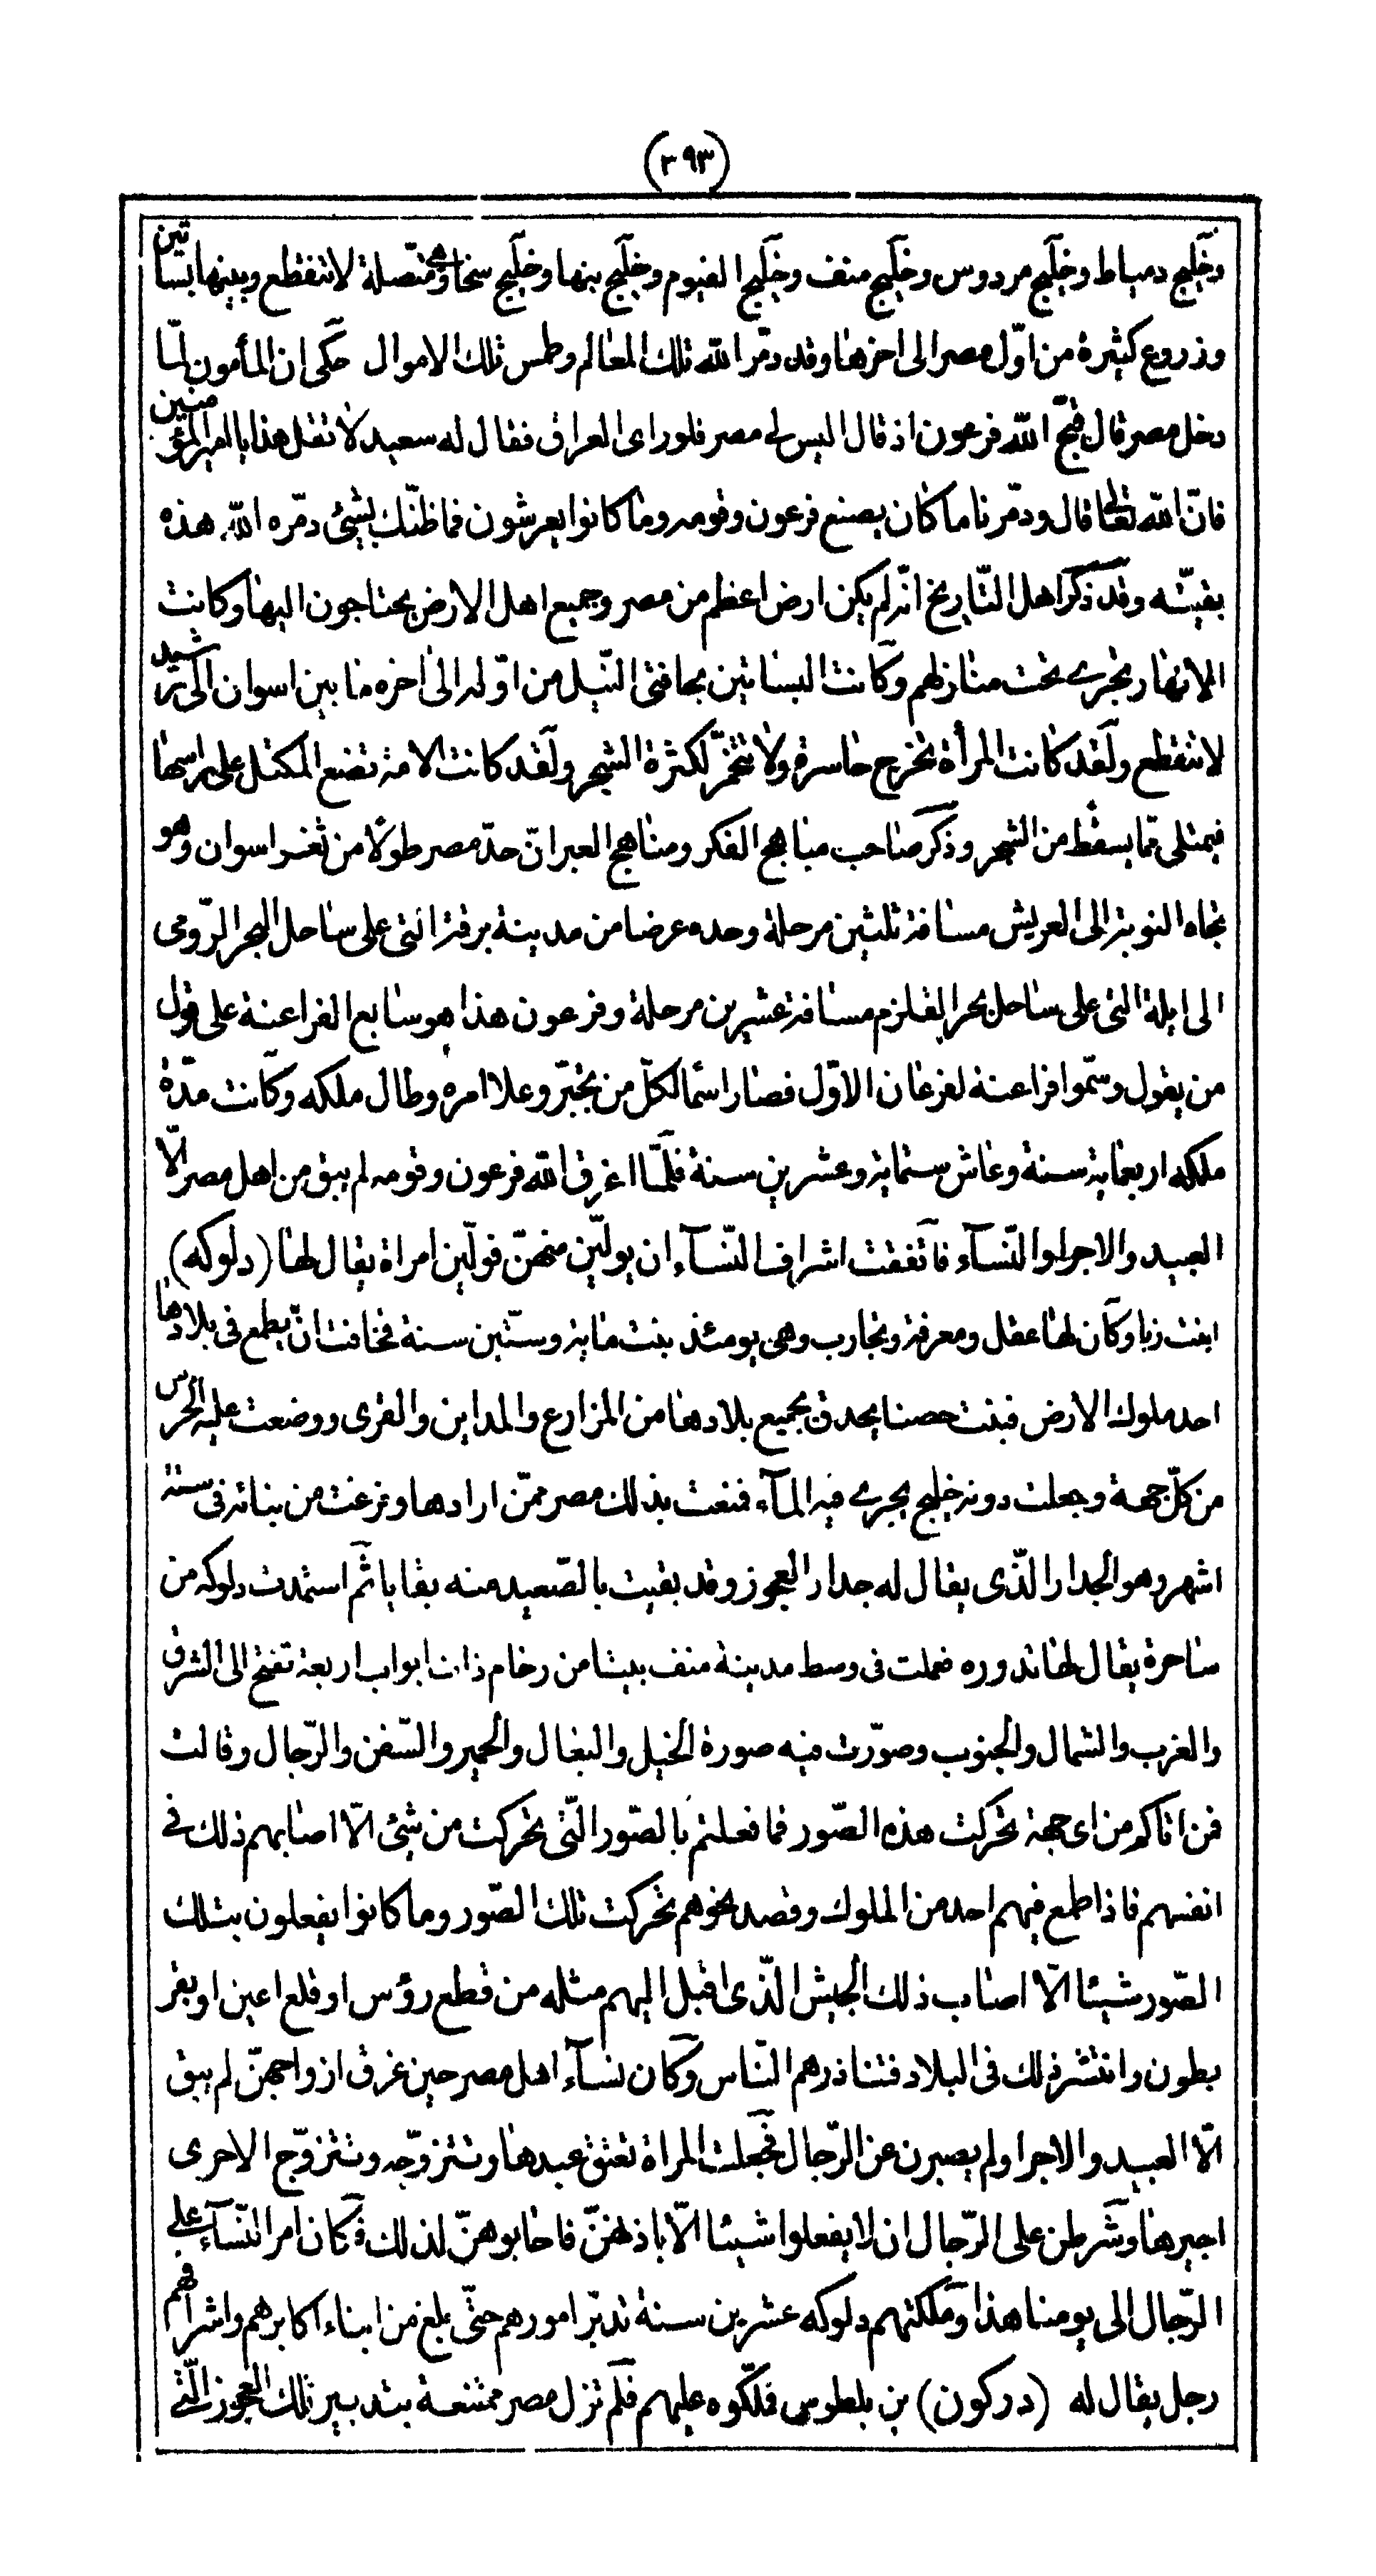 (٣٩٣)
وخليج دمياط وخليج مردوس وخليج منف وخليج الفيوم وخليج بنها وخليج سخا وهي متّصلة لا تنقطع وبينها بساتين
وزروع كثيرة من اوّل مصر الى اخرها وقد دمّر الله تلك المعالم وطمس تلك الاموال حكى ان المأمون لمّا
دخل مصر قال قبّح الله فرعون اذ قال اليس لي مصر فلو راى العراق فقال له سعيد لا تقل هذا يا امير المؤمنين
فانّ الله تعالى قال ودمّرنا ما كان يصنع فرعون وقومه وما كانوا يعرشون فما ظنّك بشيئ دمّره الله هذه
بقيّته وقد ذكر اهل التّاريخ انّه لم يكن ارض اعظم من مصر وجميع اهل الارض يحتاجون اليها وكانت
الانهار تجري تحت منازلهم وكانت البساتين بحافتى النّيل من اوّله الى اخره ما بين اسوان الى رشيد
لا تنقطع ولقد كانت المرأة تخرج حاسرة ولا تتخمّر لكثرة الشجر ولقد كانت الامة تضع المكتل على راسها
فيمتلى ممّا يسقط من الشجر وذكر صاحب مباهج الفكر ومناهج العبر انّ حدّ مصر طولا من ثغر اسوان وهو
تجاه النوبة الى العريش مسافة ثلثين مرحلة وحده عرضا من مدينة برقة التى على ساحل البحر الرّومى
الى ايلة التى على ساحل بحر القلزم مسافة عشرين مرحلة وفرعون هذا هو سابع الفراعنة على قول
من يقول وسمّوا فراعنة لفرعان الاوّل فصار اسما لكلّ من تجبّر وعلا امره وطال ملكه وكانت مدّة
ملكه اربعماية سنة وعاش ستماية وعشرين سنة فلمّا اغرق الله فرعون وقومه لم يبق من اهل مصر الّا
العبيد والاجرا والنّسآء فاتفقت اشراف النّسآء ان يولّين منهنّ فولّين امراة يقال لها (دلوكه)
ابنت زبا وكان لها عقل ومعرفة وتجارب وهى يومئذ بنت ماية وستّين سنة فخافت انّ يطمع فى بلادها
احد ملوك الارض فبنت حصنا يحدق بجميع بلادها من المزارع والمداين والقرى ووضعت عليه الحرس
من كلّ جهة وجعلت دونه خليج يجري فيه المآء فمنعت بذلك مصر ممّن ارادها وفرغت من بنائه فى ستة
اشهر وهو الجدار الّذى يقال له جدار العجوز وقد بقيت بالصّعيد منه بقايا ثم استمدت دلوكه من
ساحرة يقال لها تدوره فعملت فى وسط مدينة منف بيتا من رخام ذات ابواب اربعة تفتح الى الشرق
والغرب والشمال والجنوب وصوّرت فيه صورة الخيل والبغال والحمير والسّفن والرّجال وقالت
فمن اتاكم من اى جهة تحركت هذه الصّور فما فعلتم بالصّور الّتى تحركت من شئ الّا اصابهم ذلك في
انفسهم فاذا طمع فيهم احد من الملوك وقصد نحوهم تحركت تلك الصّور وما كانوا يفعلون بتلك
الصّور شيئا الّا اصاب ذلك الجيش الّذى اقبل اليهم مثله من قطع رؤس او قلع اعين او بقر
بطون وانتشر ذلك فى البلاد فتناذرهم النّاس وكان نسآء اهل مصر حين غرق ازواجهنّ لم يبق
الّا العبيد والاجرا ولم يصبرن عن الرّجال فجعلت المراة تعتق عبدها وتتزوّجه وتتزوّج الاخرى
اجيرها وشرطن على الرّجال ان لا يفعلوا شيئا الّا باذنهنّ فاجابوهنّ لذلك فكان امر النّسآء على
الرّجال الى يومنا هذا وملكتهم دلوكه عشرين سنة تدبّر امورهم حتّى بلغ من ابناء اكابرهم واشرافهم
رجل يقال له (دركون) بن بلطوس فملّكوه عليهم فلم تزل مصر ممتنعة بتدبير تلك العجوز الّتي